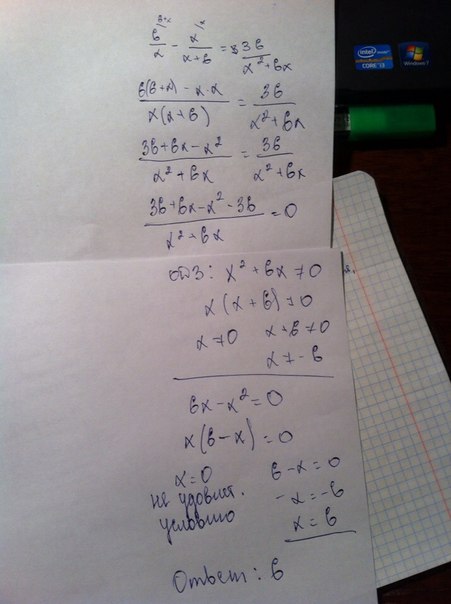 6+x x
6/x - x/(x+6) = 36/(x²+6x)
(6(6+x) - x·x)/(x(x+6)) = 36/(x²+6x)
(36+6x-x²)/(x²+6x) = 36/(x²+6x)
(36+6x-x²-36)/(x²+6x) = 0
ОДЗ: x²+6x≠0
x(x+6)≠0
x≠0 x+6≠0
x≠-6
6x-x²=0
x(6-x)=0
x=0 6-x=0
не удовлет. -x=-6
условию x=6
Ответ: 6
intel
CORE i3
Windows 7